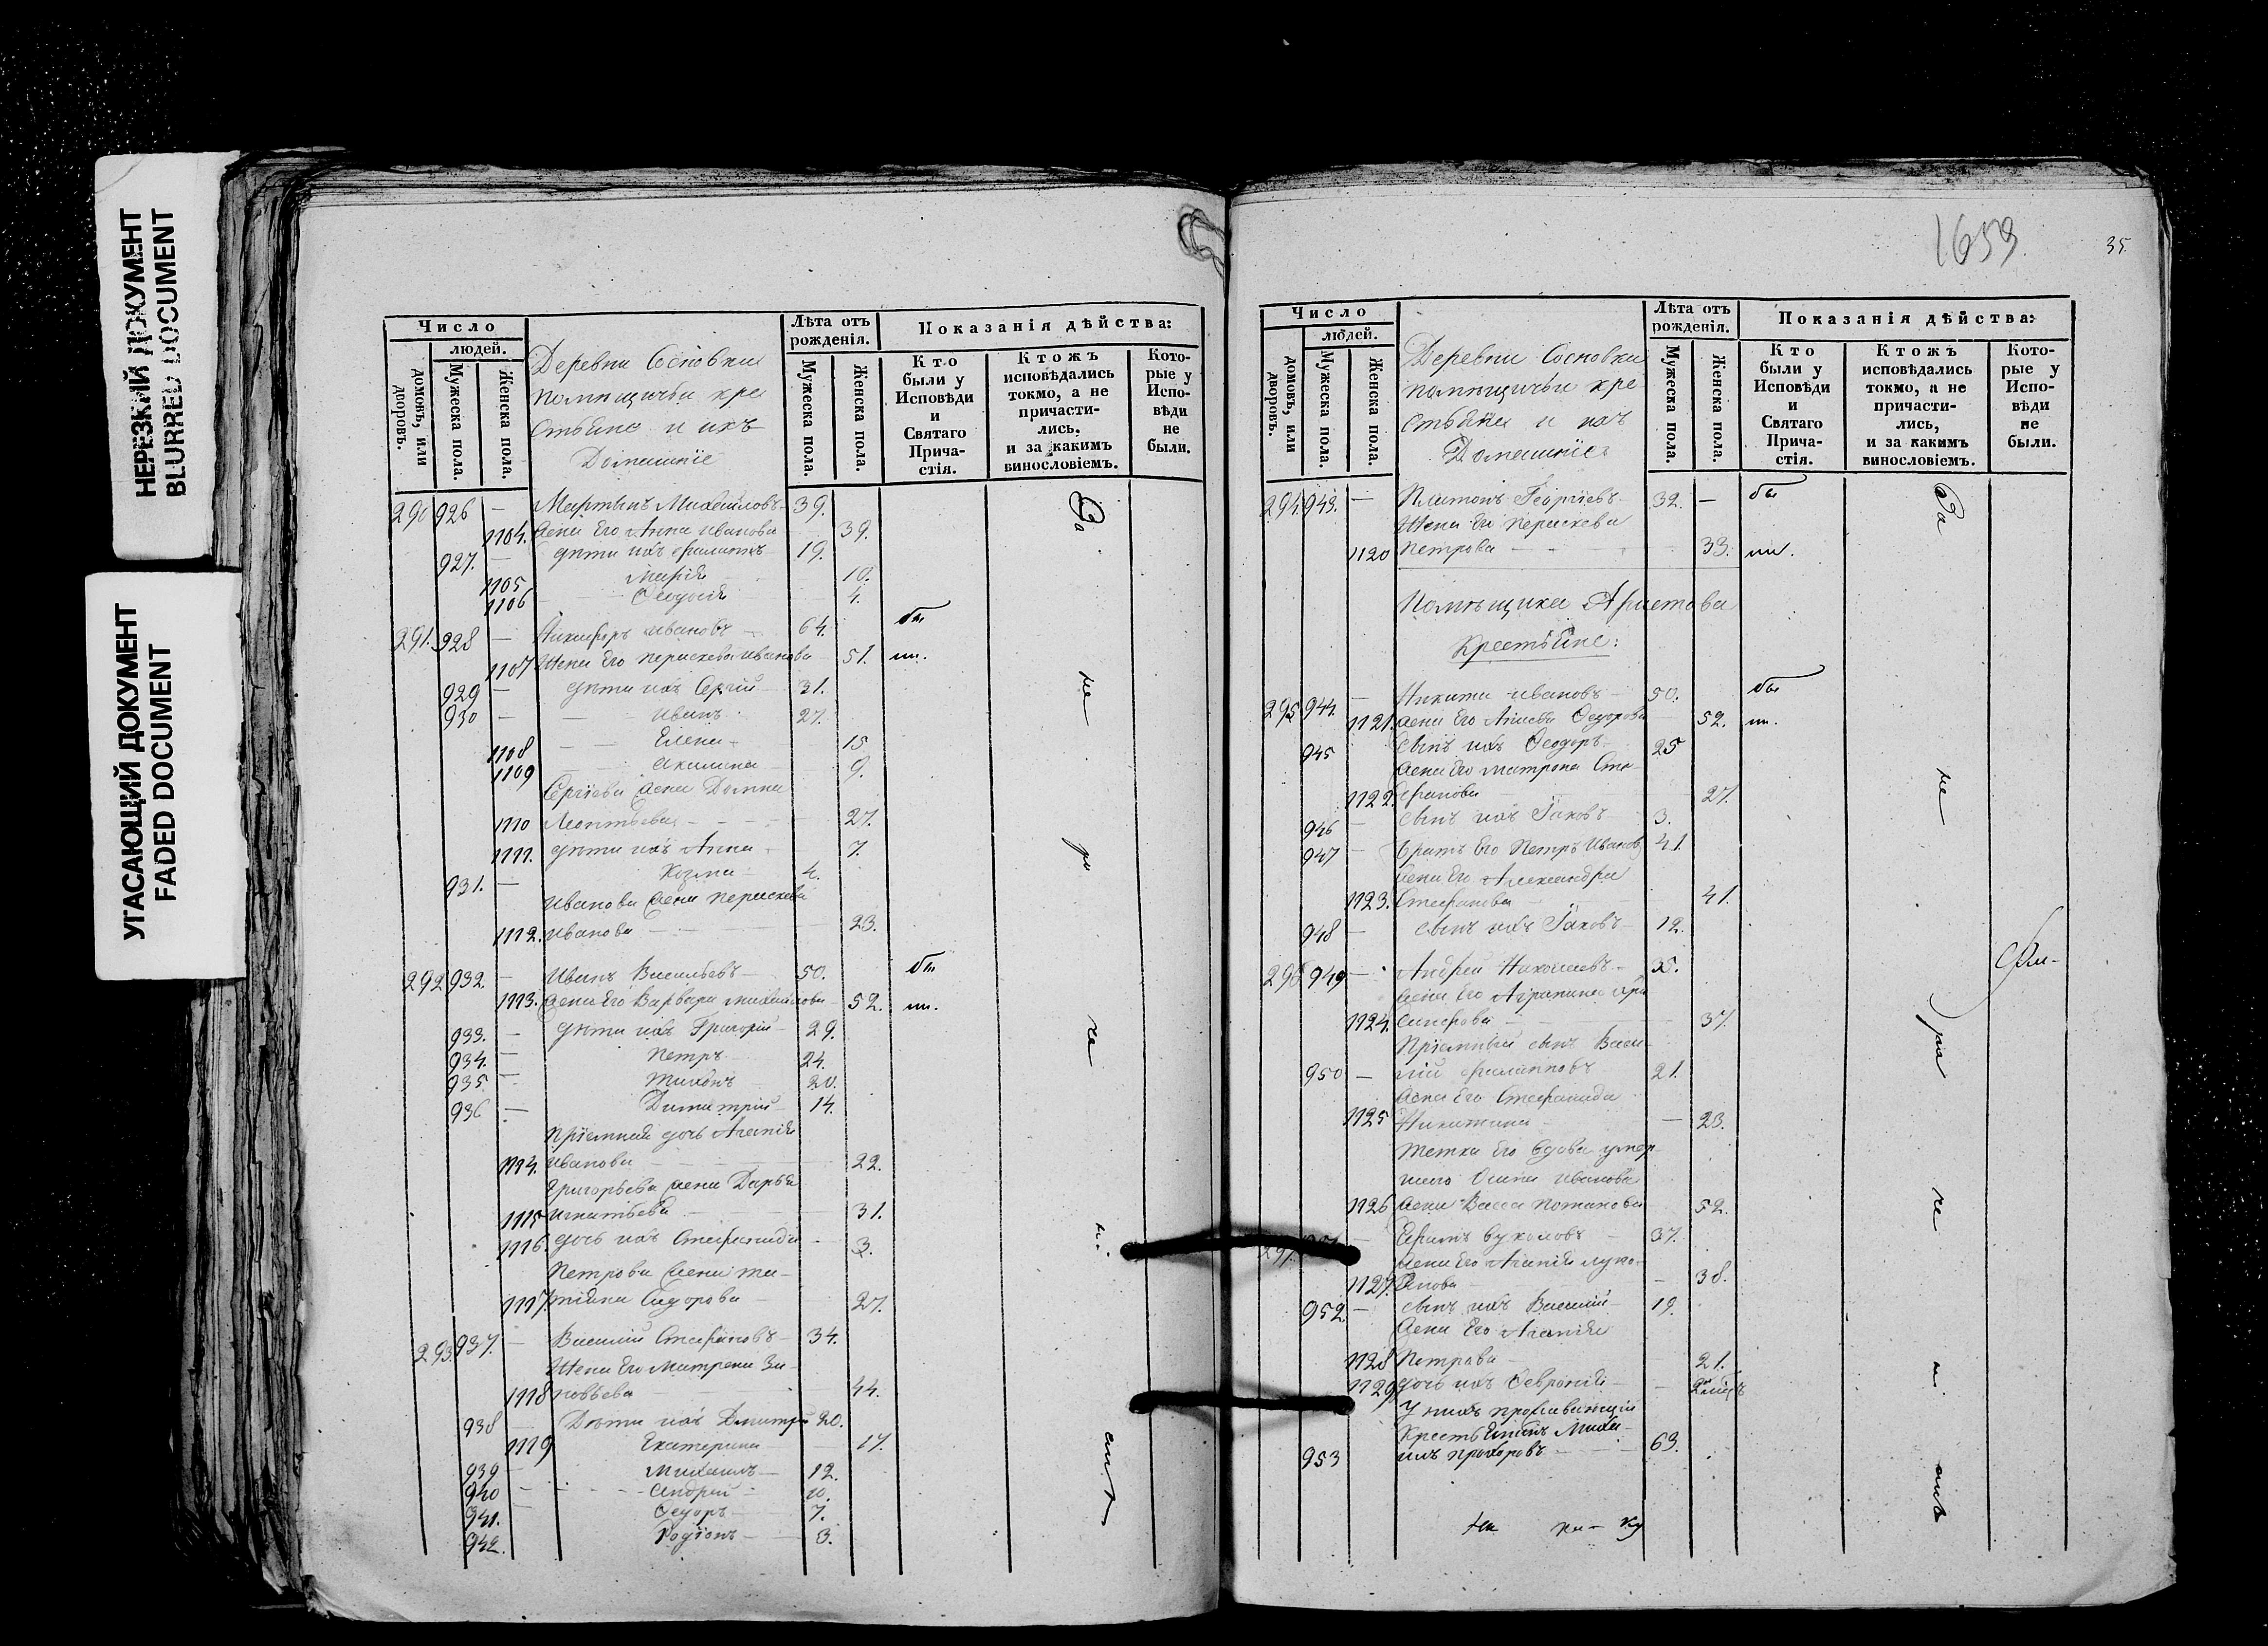 НЕРЕЗКИЙ ДОКУМЕНТ
BLURRED DOCUMENT
УГАСАЮЩИЙ ДОКУМЕНТ
FADED DOCUMENT
Число
людей.
домовъ, или дворовъ.
Мужеска пола.
Женска пола.
Деревни Сосновки
помѣщичьи кре
стьяне и ихъ
Домашніе
Лѣта отъ рожденія.
Мужеска пола.
Женска пола.
Показанія дѣйства:
Кто были у Исповѣди и Святаго Прича-стія.
Ктожъ исповѣдались токмо, а не причасти-лись, и за какимъ винословіемъ.
Кото-рые у Испо-вѣди не были.
290 926 — Мартынъ Михайловъ — 39.
1104. Жена Его Анна Иванова 39.
927. — дѣти ихъ Филиппъ 19.
1105 Марія 10.
1106 Феодосія 4.
291. 928 — Никифоръ Ивановъ — 64. бы
1107 Жена Его Параскева Иванова 51. ли.
929 — дѣти ихъ Сергій — 31.
930 — Иванъ 27.
1108 Елена 15
1109 Акилина 9.
Сергіева жена Домна
1110 Леонтьева 27.
1111. дѣти ихъ Анна 7.
931. — Козма 4.
Иванова жена Параскева
1112. Иванова 23.
292 932 — Иванъ Васильевъ — 50. бы
1113. Жена Его Варвара Михайлова 52. ли.
933. — дѣти ихъ Григорій — 29.
934. — Петръ 24.
935. — Тихонъ 20.
936 — Димитрій — 14.
Пріемная дочь Агапія
1114. Иванова 22.
Григорьева жена Дарья
1115 Игнатьева 31.
1116 дочь ихъ Стефанида — 3.
Петрова жена Та-
1117 тіяна Сидорова 27.
293. 937. — Василій Стефановъ — 34.
Жена Его Матрена Зи-
1118 новьева 44.
938 — Дѣти ихъ Дмитрій 20.
1119 Екатерина 17.
939 — Михаилъ — 12.
940 — Андрей 10.
941. Федоръ 7.
942. Родіонъ — 3.
1653
35.
Число
людей.
домовъ, или дворовъ.
Мужеска пола.
Женска пола.
Деревни Сосновки
помѣщичьи кре
стьяне и ихъ
Домашніе
Лѣта отъ рожденія.
Мужеска пола.
Женска пола.
Показанія дѣйства:
Кто были у Исповѣди и Святаго Прича-стія.
Ктожъ исповѣдались токмо, а не причасти-лись, и за какимъ винословіемъ.
Кото-рые у Испо-вѣди не были.
294. 943. — Платонъ Георгіевъ — 32. — бы
Жена Его Параскева
1120 Петрова — 33. ли.
Помѣщика Аристова
Крестьяне:
295 944. — Никита Ивановъ — 50. бы
1121. Жена Его Федорова 52. ли.
945 Сынъ ихъ Феодоръ 25
Жена Его Матрона Сте-
1122. фанова 27.
946 — сынъ ихъ Іаковъ — 3.
947 — Братъ Его Петръ Иванов 41.
Жена Его Александра
1123. Стефанова 41.
948 — сынъ ихъ Іаковъ — 12.
296 949 — Андрей Николаевъ — 35.
Жена Его Агрипина
1124. 37.
Пріемный сынъ Васи-
950 — лій Филипповъ 21.
Жена Его Стефанида
1125 Никитина — 23.
Тетка Его вдова умер-
шаго Осипа Иванова
1126 жена Васса Потапова 52.
297. — Ефимъ Вуколовъ — 37.
Жена Его Агапія
1127. 38.
952. — сынъ ихъ Василій 19.
Жена Его Агапія
1128 Петрова 21.
1129 дочь ихъ Февронія
У нихъ проживающій
Крестьянинъ Миха-
953 илъ Прохоровъ 63.